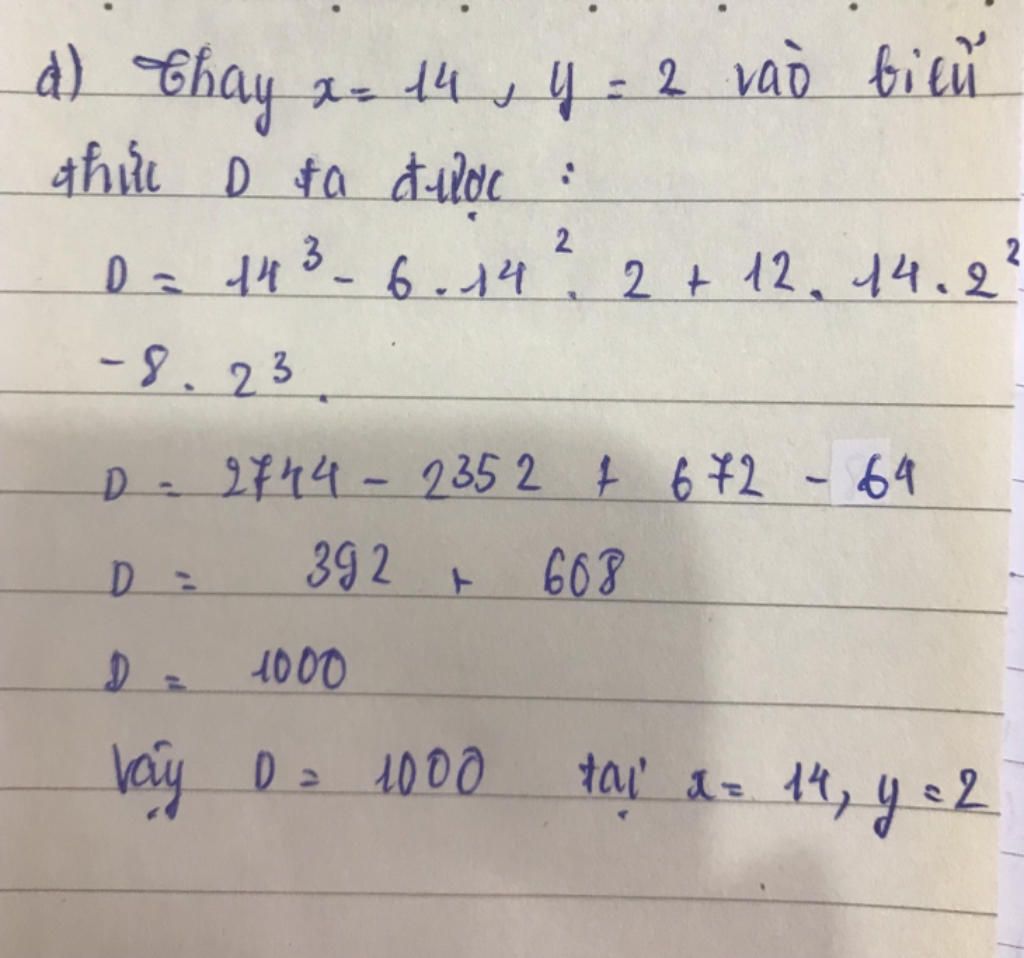 d) Thay x = 14, y = 2 vào biểu
thức D ta được :
D = 14³ - 6 . 14² . 2 + 12 . 14 . 2²
- 8 . 2³ .
D = 2744 - 2352 + 672 - 64
D = 392 + 608
D = 1000
Vậy D = 1000 tại x = 14, y = 2